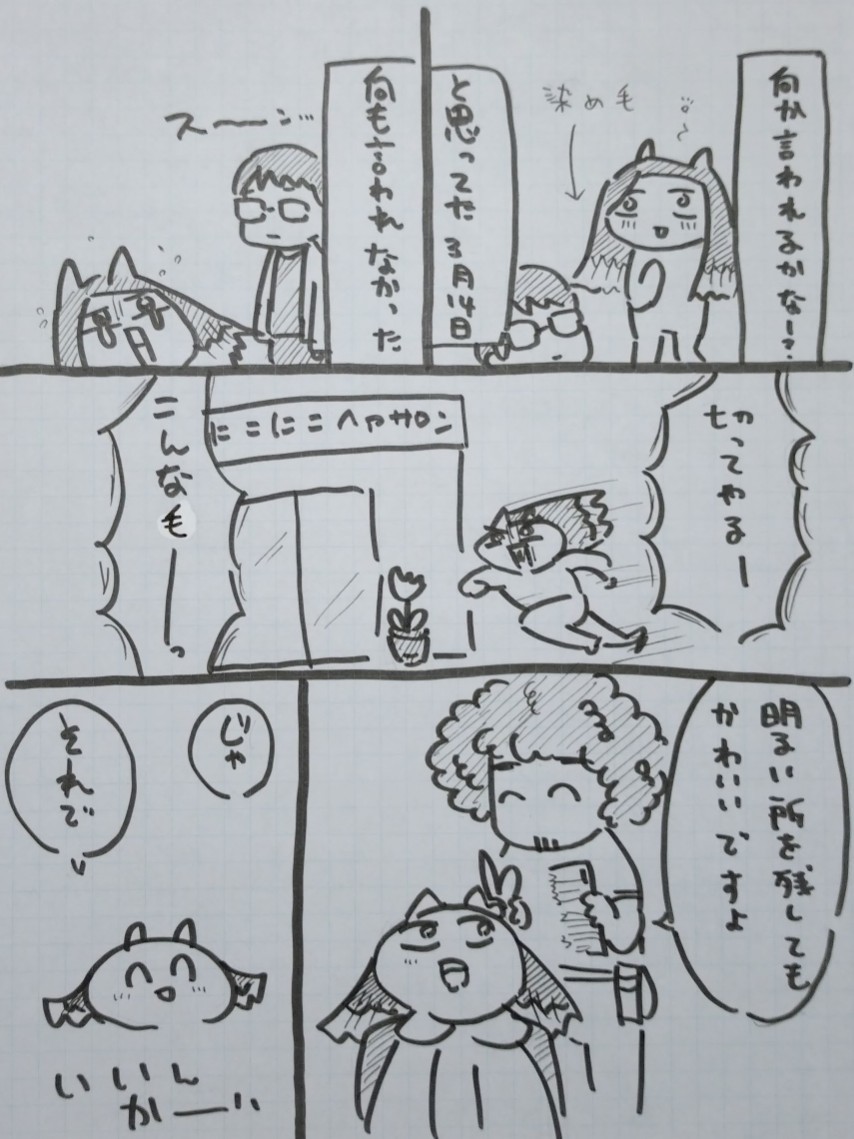 何か言われるかなー?
染め毛
と思ってた3月14日
何も言われなかった
スーーン…
切ってやるー
にこにこヘアサロン
こんな毛ーーっ
明るい所を残しても
かわいいですよ
じゃ
それで
いいん
かーい